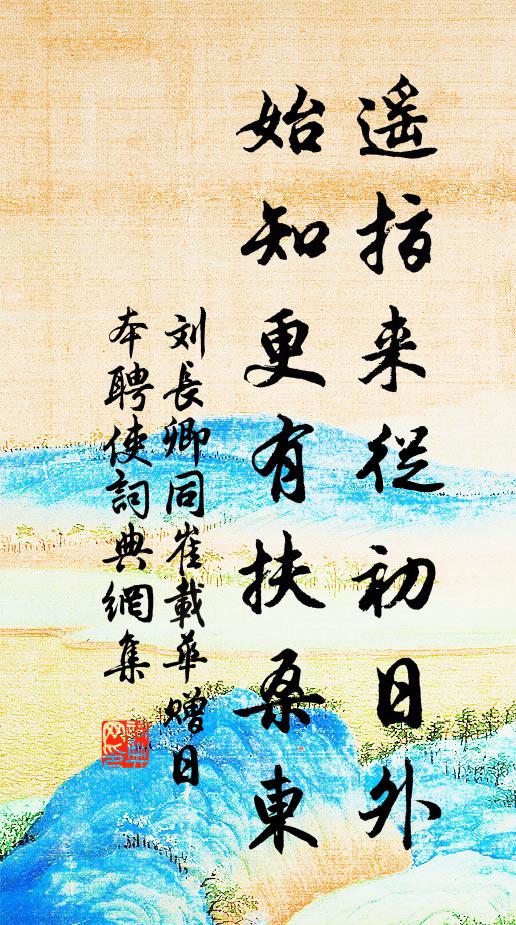 遥指来從初日外
始知更有扶桑東
刘長卿同崔載華赠日
本聘使詞典網集